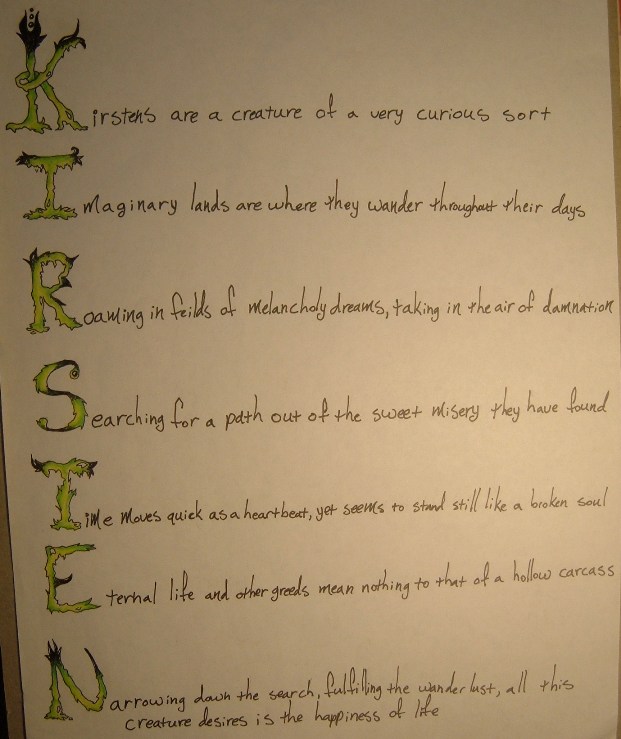 Kirstens are a creature of a very curious sort
Imaginary lands are where they wander throughout their days
Roaming in feilds of melancholy dreams, taking in the air of damnation
Searching for a path out of the sweet misery they have found
Time moves quick as a heartbeat, yet seems to stand still like a broken soul
Eternal life and other greeds mean nothing to that of a hollow carcass
Narrowing down the search, fulfilling the wander lust, all this
creature desires is the happiness of life